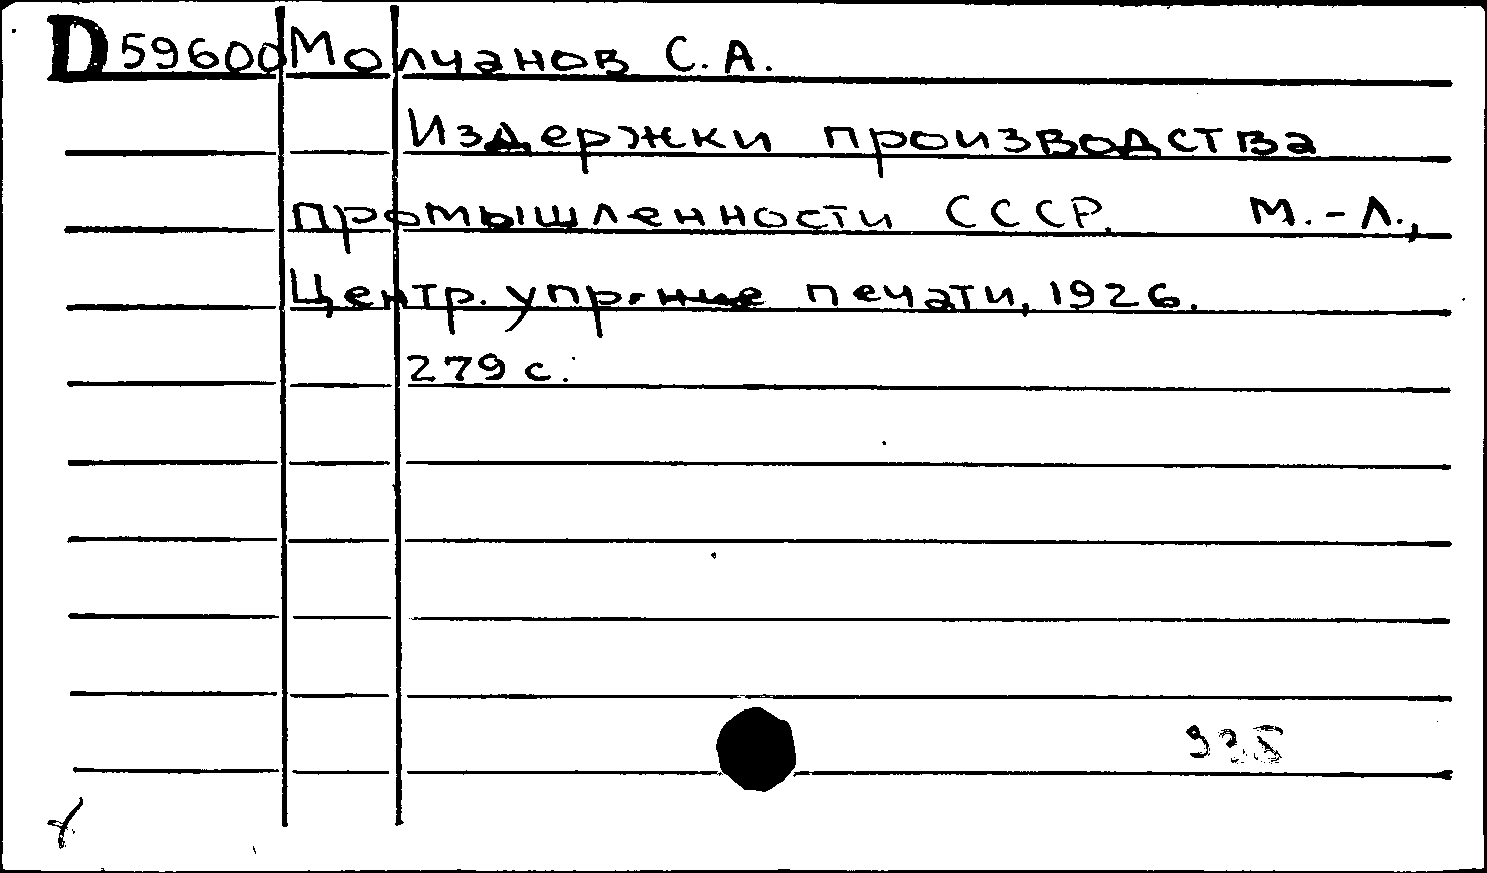 D 59600 Молчанов С.А.
Издержки производства
промышленности СССР. М.-Л.,
Центр. упр-ние печати, 1926.
279 с.